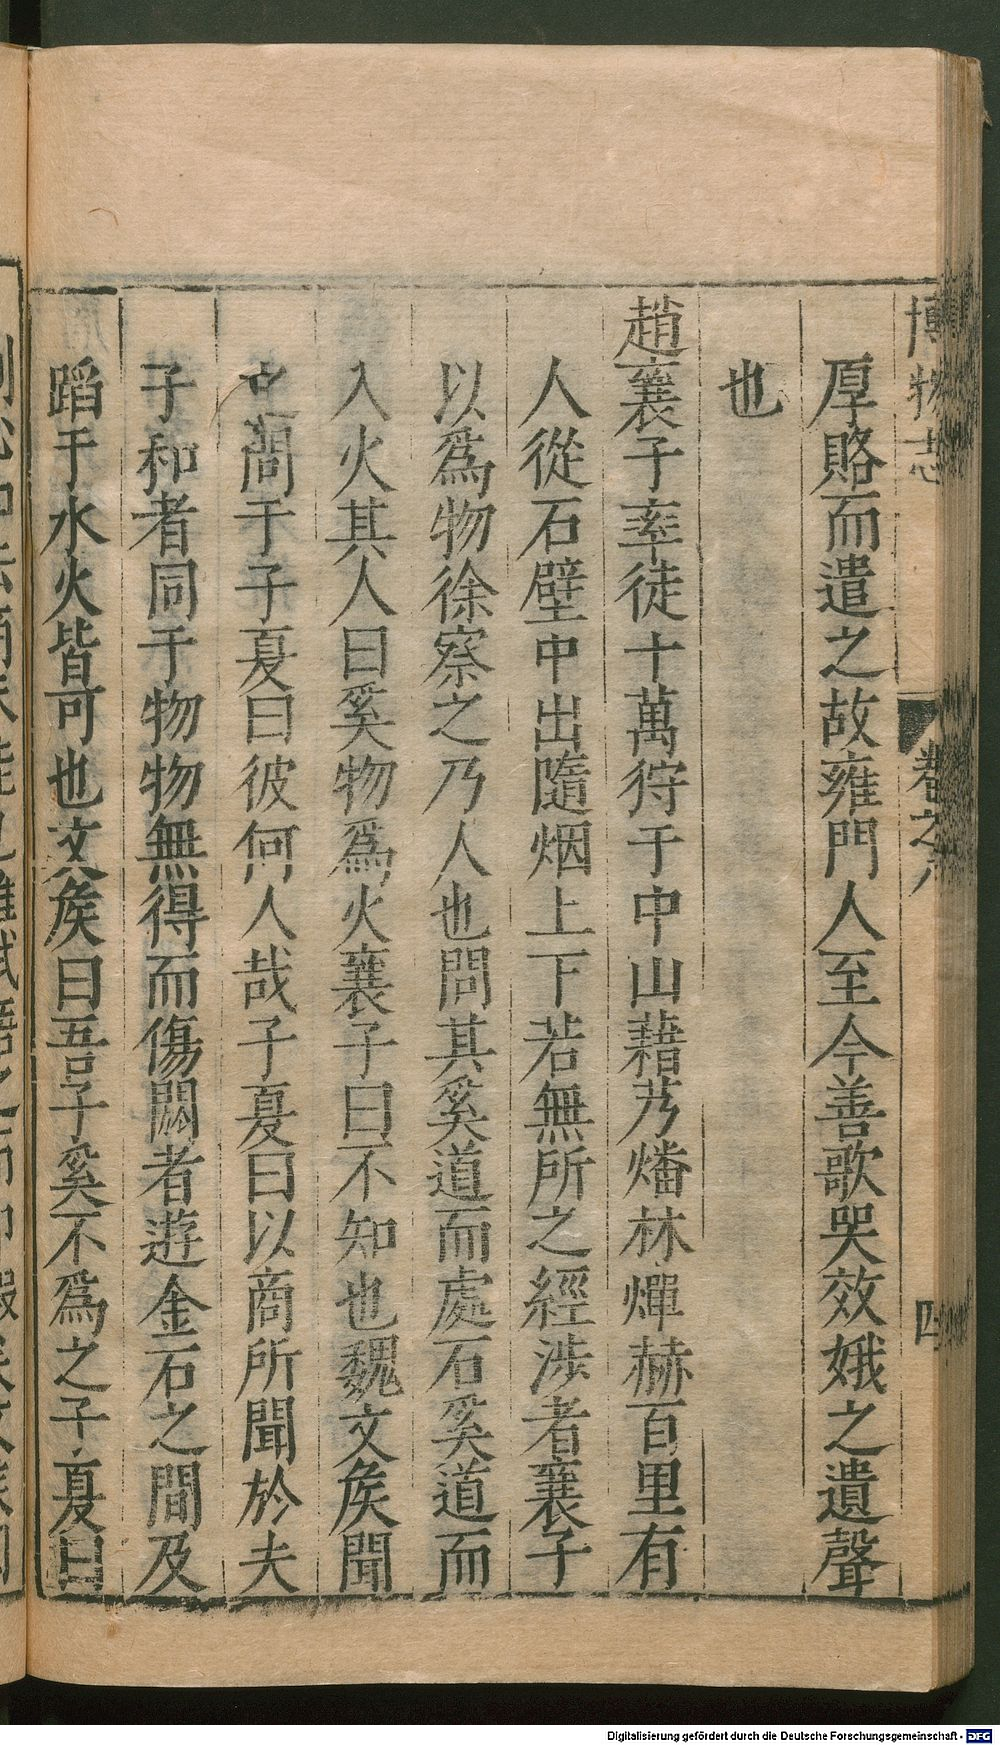 博物志
卷之八
四
厚賂而遣之故雍門人至今善歌哭效娥之遺聲
也
趙襄子率徒十萬狩于中山藉艿燔林煇赫百里有
人從石壁中出隨烟上下若無所之經涉者襄子
以爲物徐察之乃人也問其奚道而處石奚道而
入火其人曰奚物爲火襄子曰不知也魏文矦聞
問于子夏曰彼何人哉子夏曰以商所聞於夫
子和者同于物物無得而傷閡者遊金石之間及
蹈于水火皆可也文矦曰吾子奚不爲之子夏曰
Digitalisierung gefördert durch die Deutsche Forschungsgemeinschaft - DFG